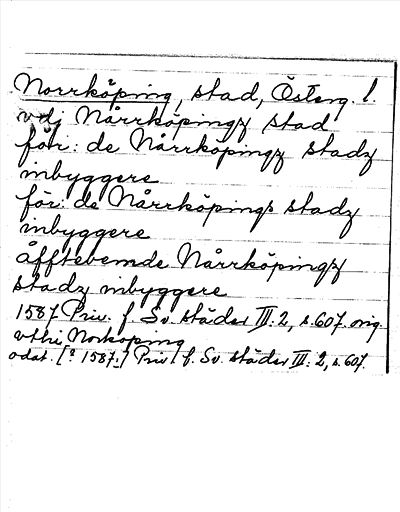 Norrköping, stad, Österg. l.
vdj Nårrköpingz stad
för: de Nårrköpingz stadz
inbyggere
för: de Nårrköpings stadz
inbyggere
åfftebemde Nårrköpingz
stadz inbyggere
1587 Priv. f. Sv. städer III: 2, s. 607. orig.
vthi Norkoping
odat. [? 1587.] Priv. f. Sv. städer III: 2, s. 607.